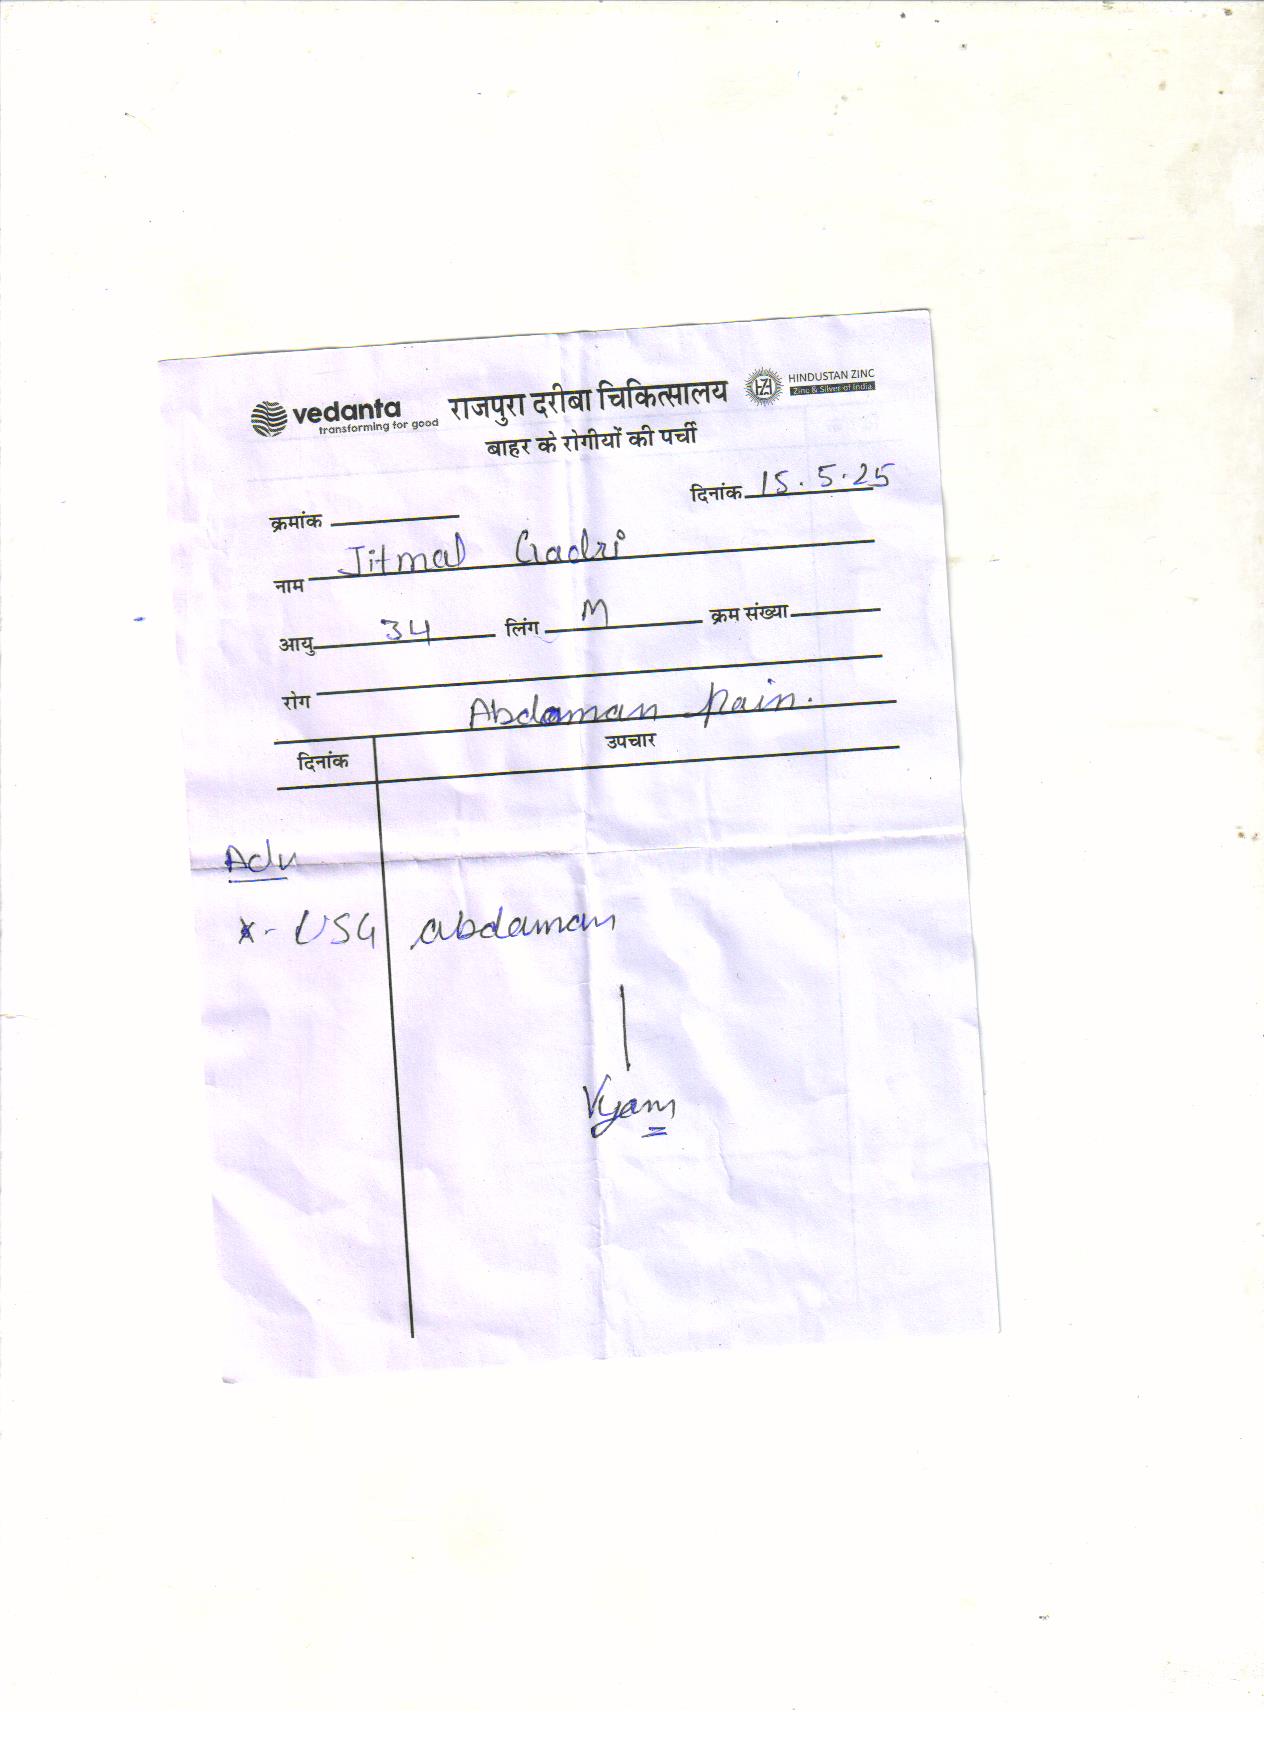 vedanta
transforming for good
राजपुरा दरीबा चिकित्सालय
HINDUSTAN ZINC
Zinc & Silver of India
बाहर के रोगीयों की पर्ची
दिनांक 15.5.25
क्रमांक
नाम Jitmal Gadri
आयु 34 लिंग M क्रम संख्या
रोग
Abdaman Pain.
दिनांक उपचार
Adv
x- USG abdaman
Vyam